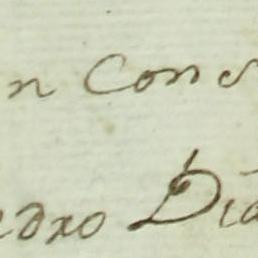 n Con
edro Dia